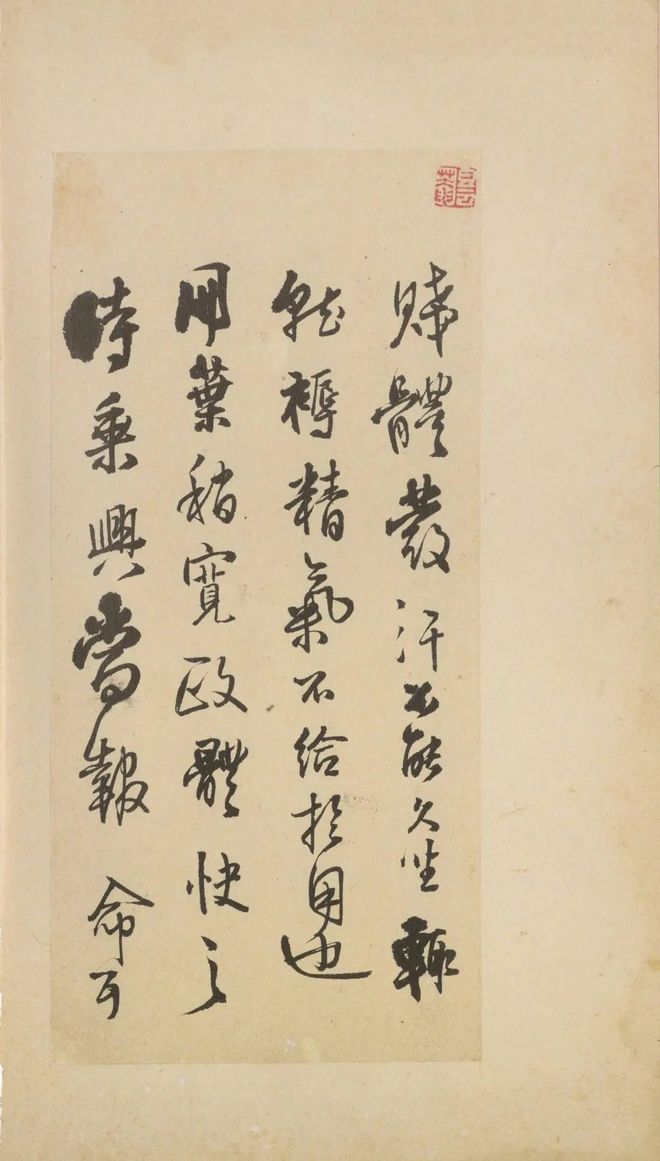 賤體發汗不能久坐輒
就褥精氣不給於用也
冊葉稍寬改體快之
時乘興當報命可